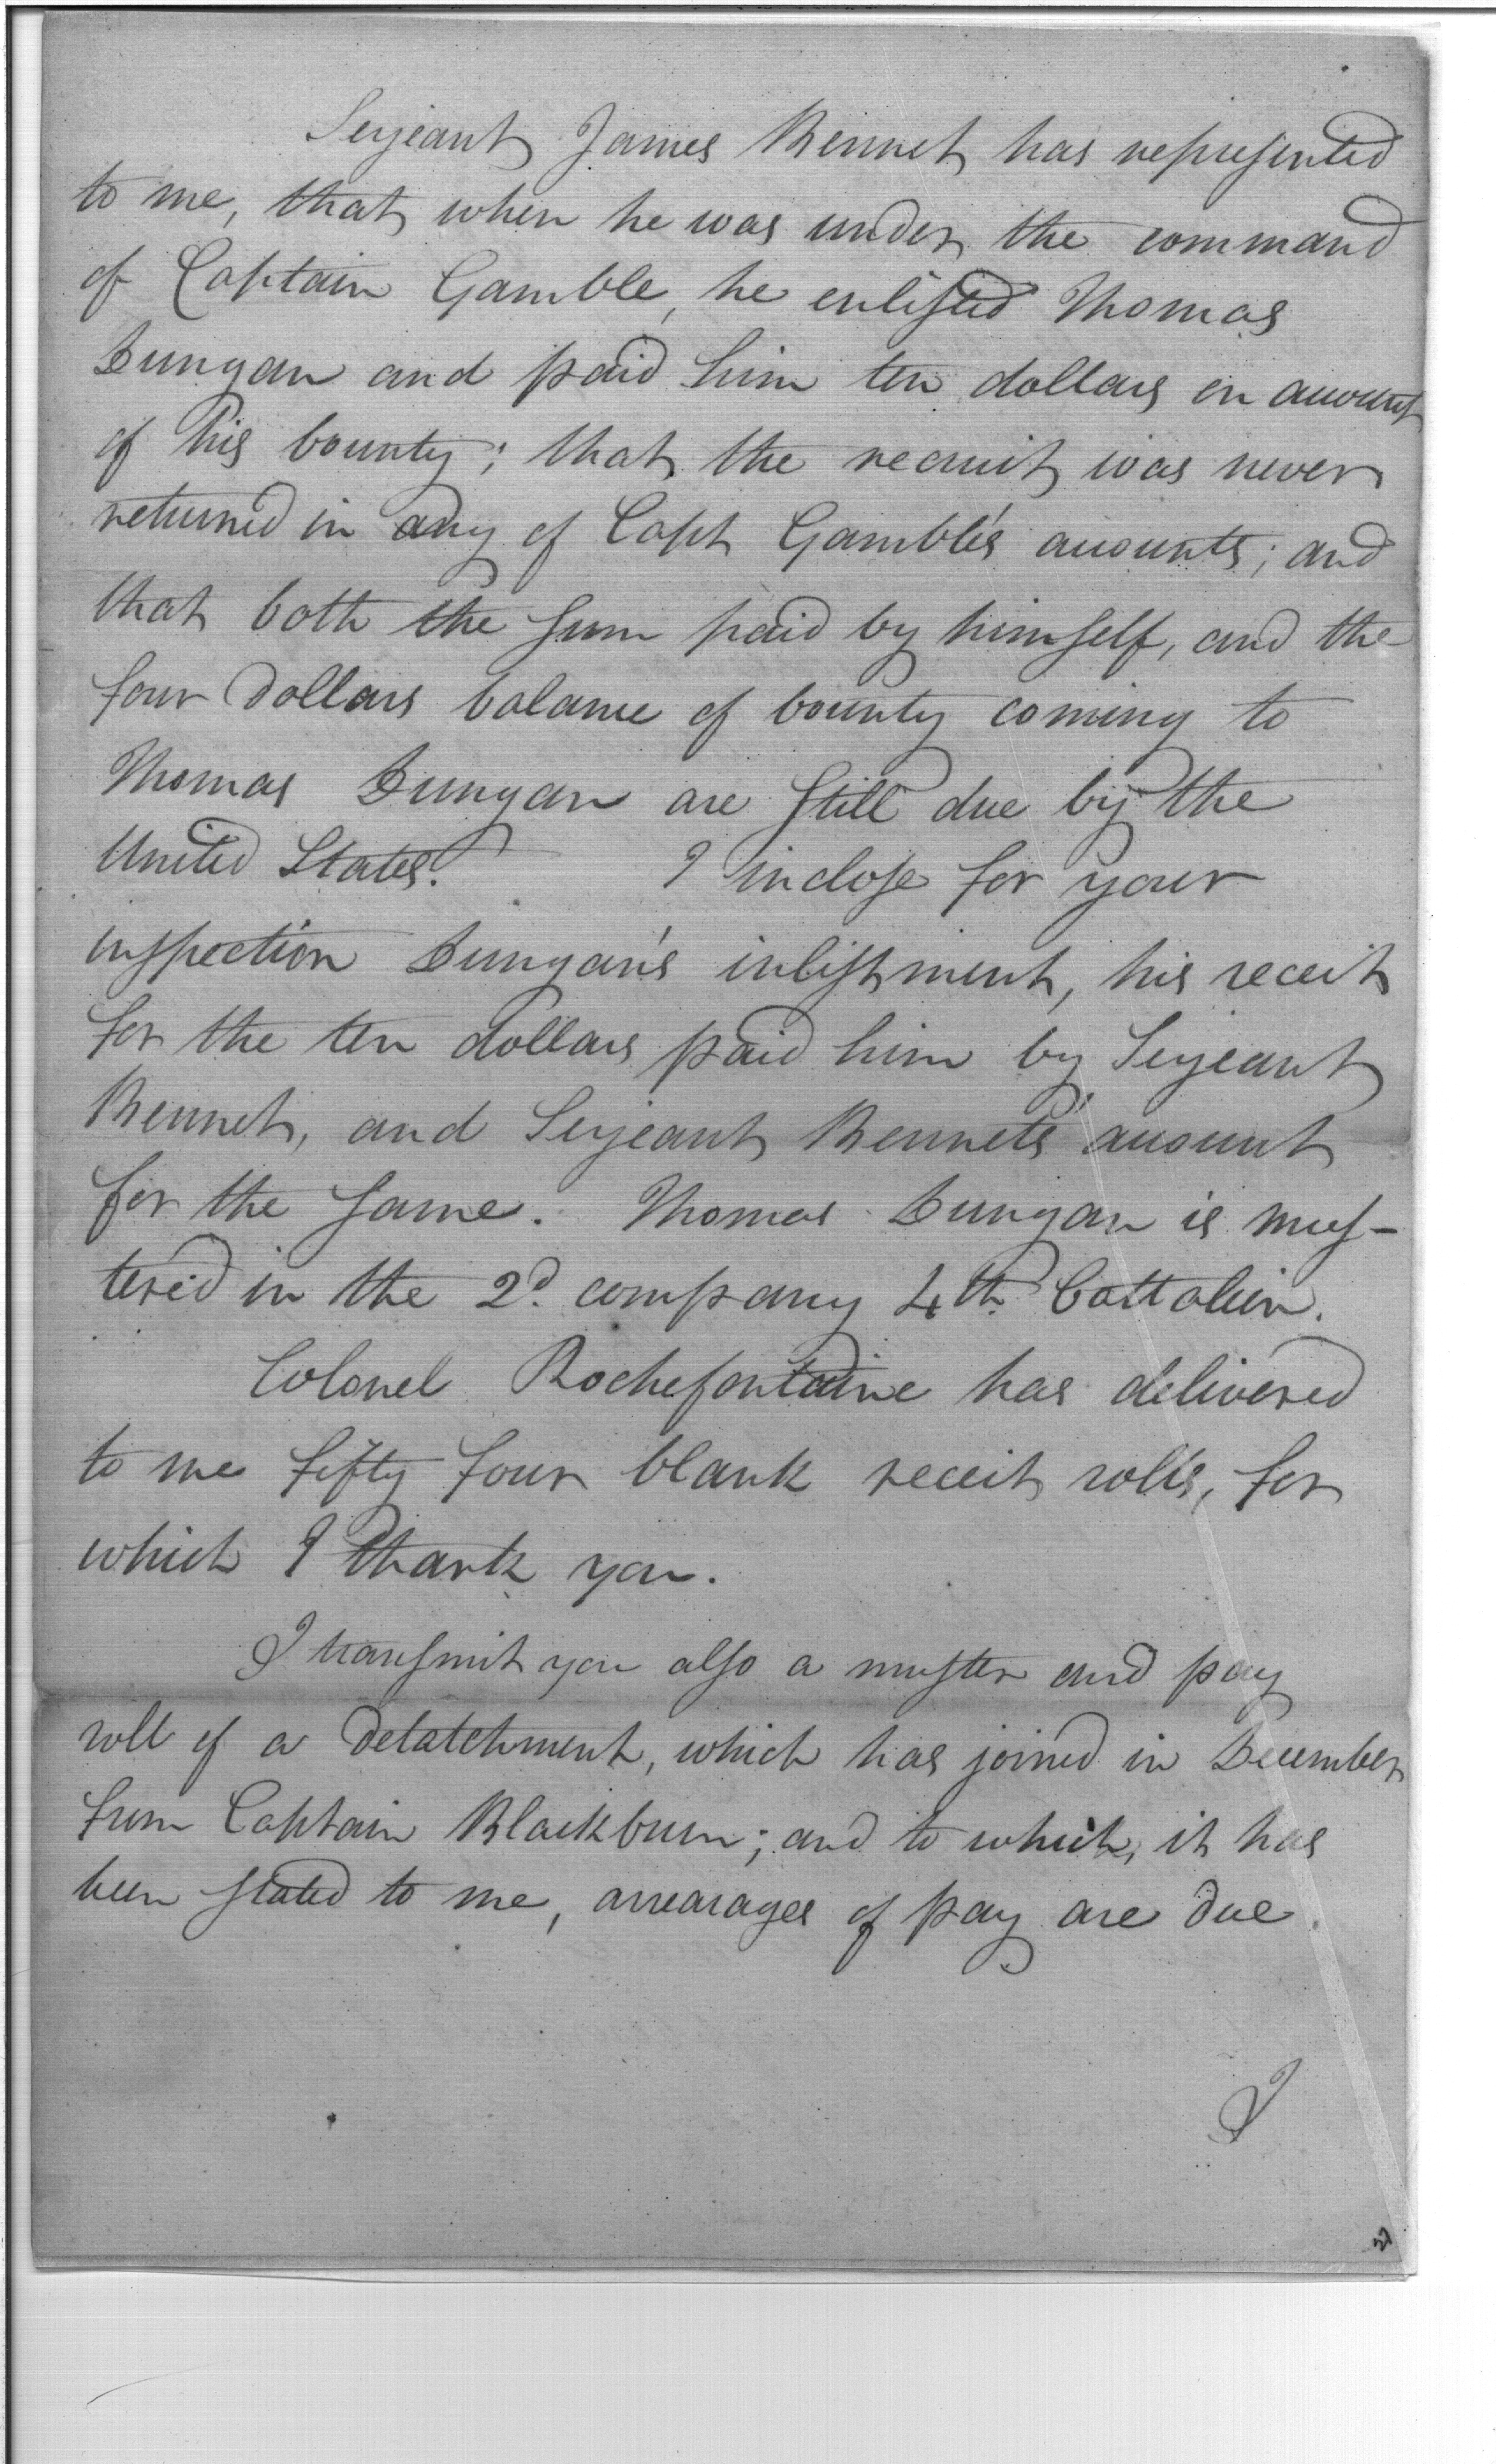 Serjeant James Bennet has represented
to me, that when he was under the command
of Captain Gamble, he enlisted Thomas
Dungan and paid him ten dollars on account
of his bounty; that the recruit was never
returned in any of Capt Gamble's accounts; and
that both the sum paid by himself, and the
four dollars balance of bounty coming to
Thomas Dungan are still due by the
United States. I inclose for your
inspection Dungan's inlistment, his receit
for the ten dollars paid him by Serjeant
Bennet, and Serjeant Bennet's account
for the same. Thomas Dungan is mus-
tered in the 2d. company 4th battalion.
Colonel Rochefontaine has delivered
to me fifty four blank receit rolls, for
which I thank you.
I transmit you also a muster and pay
roll of a detatchment, which has joined in December
from Captain Blackburn; and to which, it has
been stated to me, arrearages of pay are due.
I